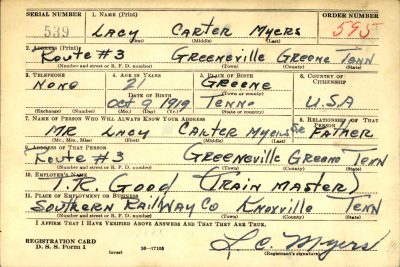 SERIAL NUMBER 1. NAME (Print) ORDER NUMBER
539 LACY CARTER MYERS 595
(First) (Middle) (Last)
2. ADDRESS (Print)
Route #3 Greeneville Greene Tenn
(Number and street or R. F. D. number) (Town) (County) (State)
3. TELEPHONE 4. AGE IN YEARS 5. PLACE OF BIRTH 6. COUNTRY OF CITIZENSHIP
None 21 Greene
DATE OF BIRTH (Town or county)
Oct 9 1919 Tenn. U.S.A
(Exchange) (Number) (Mo.) (Day) (Yr.) (State or country)
7. NAME OF PERSON WHO WILL ALWAYS KNOW YOUR ADDRESS 8. RELATIONSHIP OF THAT PERSON
MR LACY CARTER Myers SR FATHER
(Mr., Mrs., Miss) (First) (Middle) (Last)
9. ADDRESS OF THAT PERSON
Route #3 Greeneville Greene Tenn
(Number and street or R. F. D. number) (Town) (County) (State)
10. EMPLOYER'S NAME
T.R. Good (TRAIN MASTER)
11. PLACE OF EMPLOYMENT OR BUSINESS
Southern RAILWAY Co Knoxville Tenn
(Number and street or R. F. D. number) (Town) (County) (State)
I AFFIRM THAT I HAVE VERIFIED ABOVE ANSWERS AND THAT THEY ARE TRUE.
REGISTRATION CARD
D. S. S. Form 1 (over) 16-17105
L. C. Myers
(Registrant's signature)